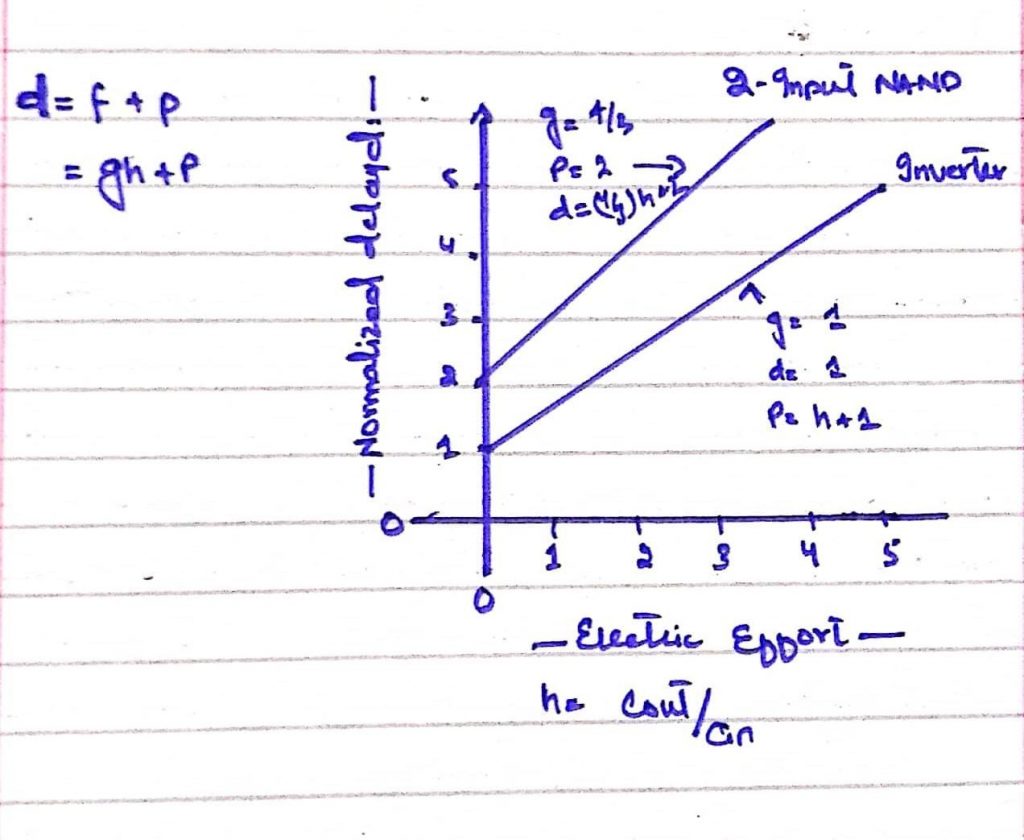 d = f + p
= gh + p
— Normalized delay d: —
5
4
3
2
1
0
g = 4/3
P = 2 →
d = (4/3)h+2
2-Input NAND
Inverter
g = 1
d = 1
P = h+1
1 2 3 4 5
0
— Electric Effort —
h = Cout/Cin